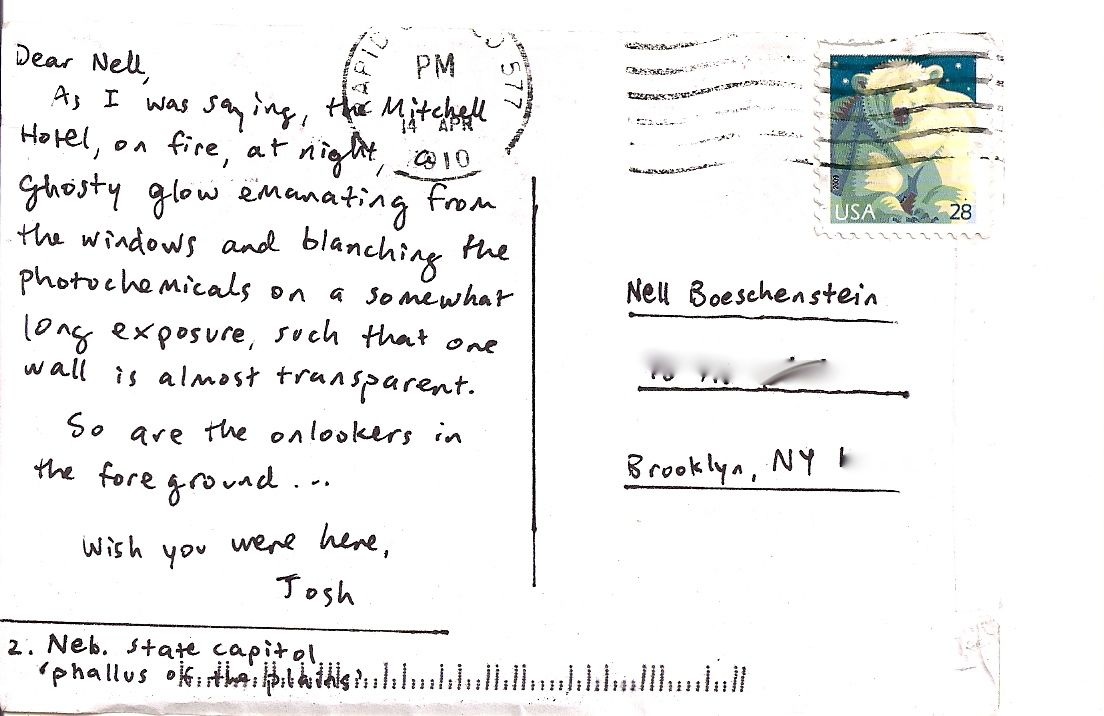 Dear Nell,
As I was saying, the Mitchell
Hotel, on fire, at night, a
ghosty glow emanating from
the windows and blanching the
photochemicals on a somewhat
long exposure, such that one
wall is almost transparent.
So are the onlookers in
the foreground...
Wish you were here,
Josh
2. Neb. state capitol
'phallus of the plains'
RAPID 577
PM
14 APR
2010
2009
USA 28
Nell Boeschenstein
Brooklyn, NY 1